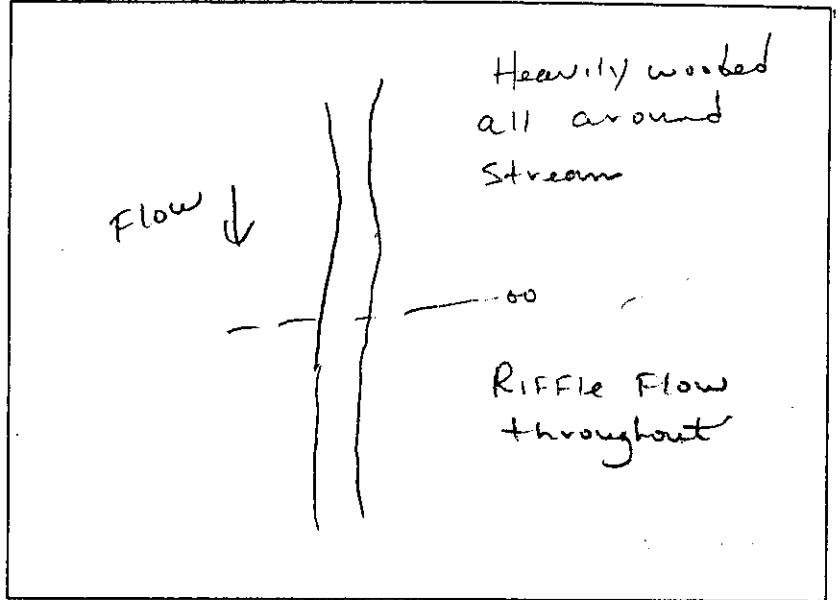 Heavily wooded
all around
Stream
Flow
00
Riffle Flow
throughout